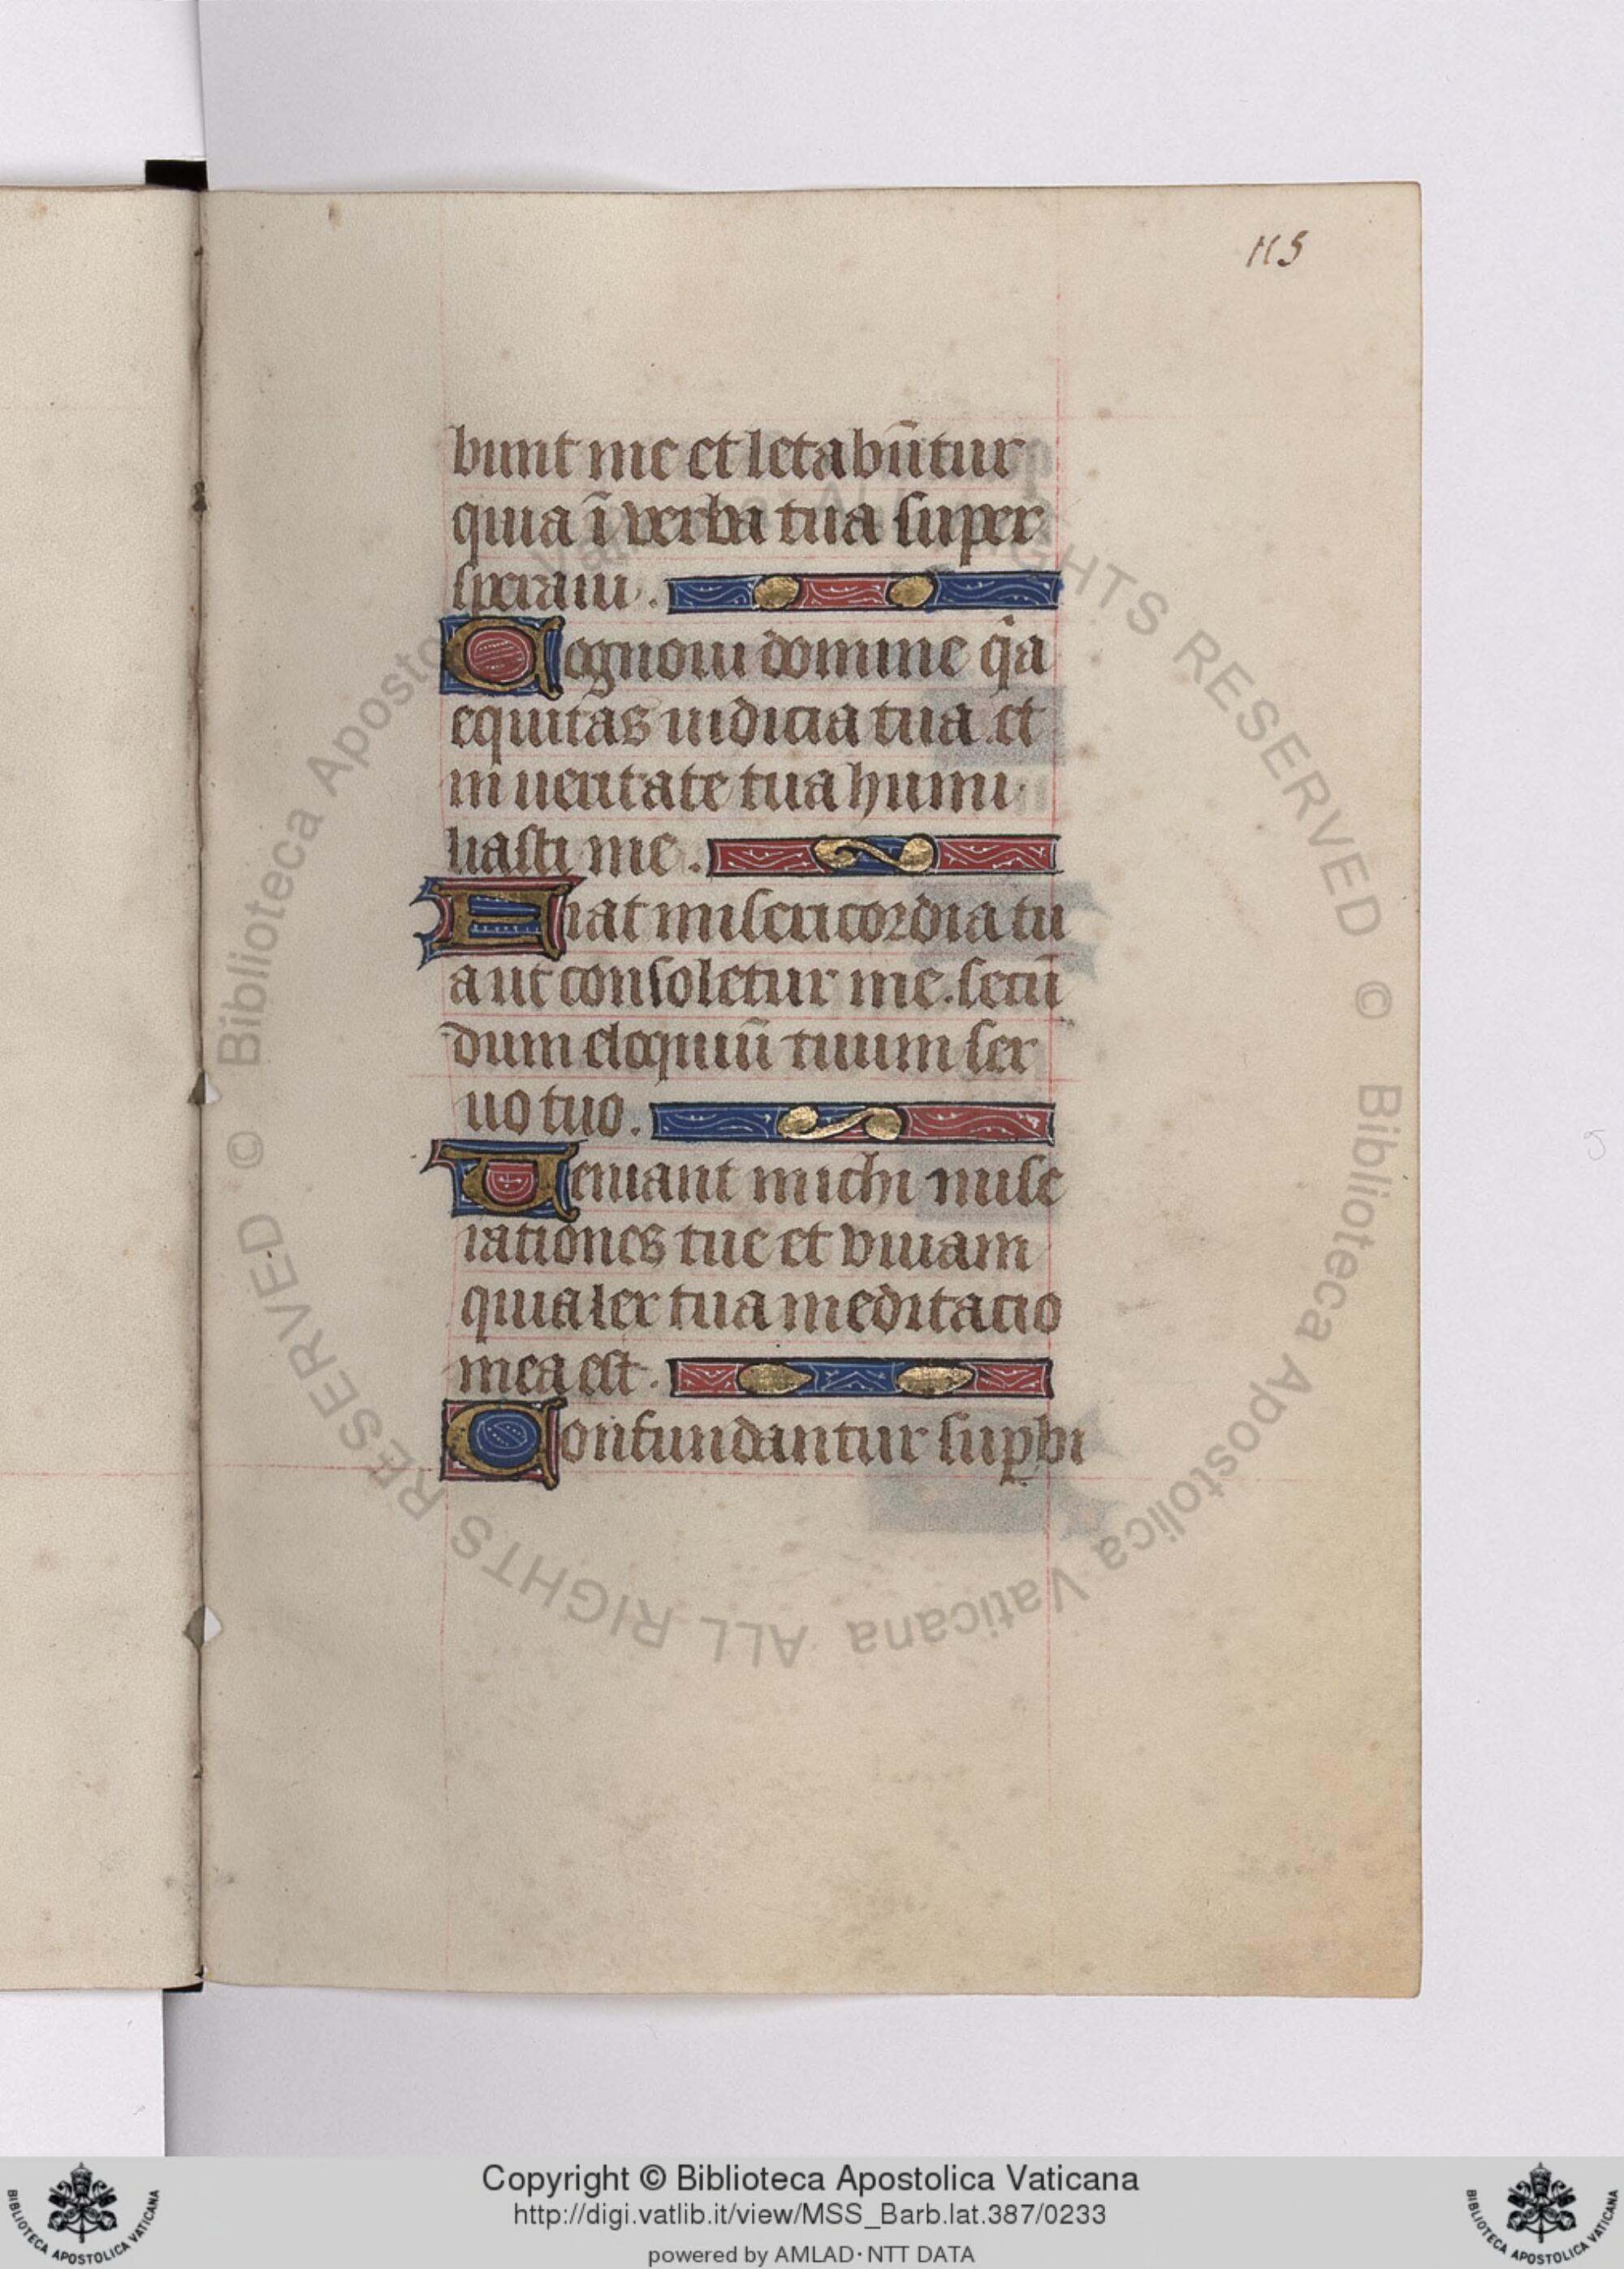 115
bunt me et letabūtur
quia ī verba tua super
speraui.
Cognoui domine qia
equitas iudicia tua et
in ueritate tua humi
liasti me.
Fiat misericordia tu
a ut consoletur me. secū
dum eloquiū tuum ser
uo tuo.
Veniant michi mise
rationes tue et viuam
quia lex tua meditacio
mea est.
Confundantur suꝑbi
© Biblioteca Apostolica Vaticana ALL RIGHTS RESERVED © Biblioteca Apostolica Vaticana ALL RIGHTS RESERVED
Copyright © Biblioteca Apostolica Vaticana
http://digi.vatlib.it/view/MSS_Barb.lat.387/0233
powered by AMLAD·NTT DATA
BIBLIOTECA APOSTOLICA VATICANA
BIBLIOTECA APOSTOLICA VATICANA